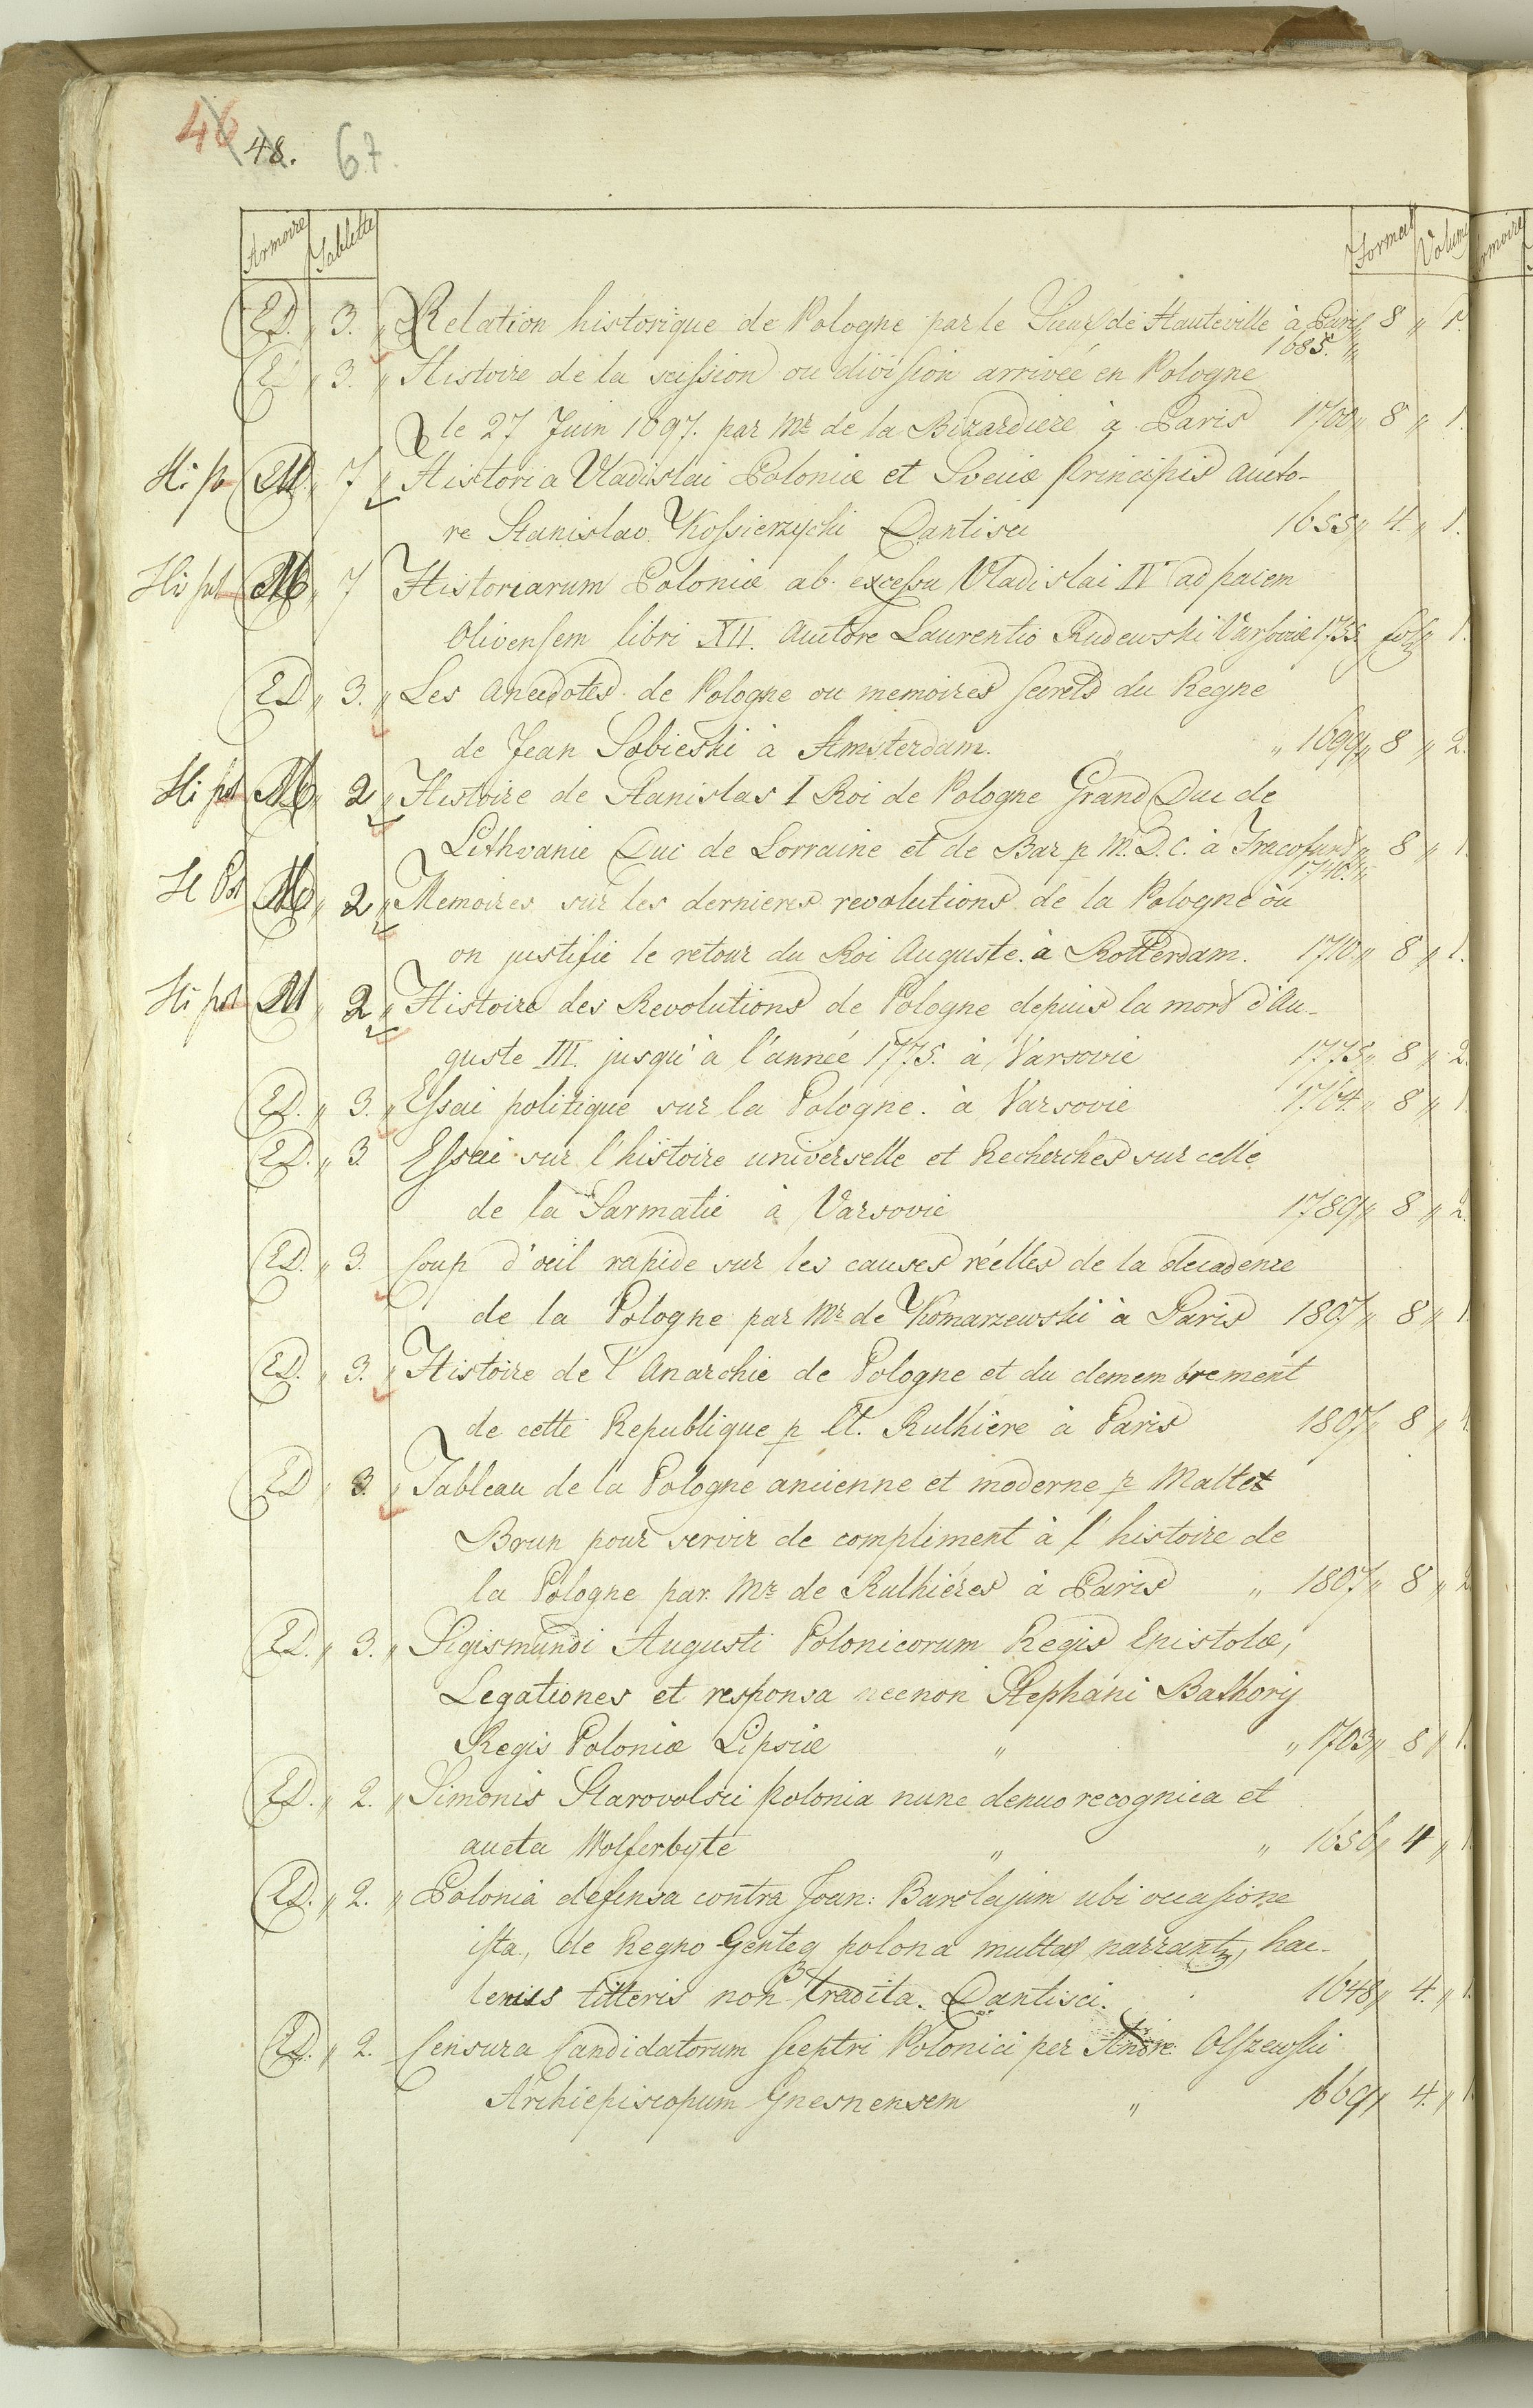 46 48. 67.
Armoire Tablette Format Volume Armoire
ED. " 3. " Relation historique de Pologne par le Sieur de Hauteville à Paris " 8 " 1.
1685. "
ED " 3. " Histoire de la scission ou division arrivée en Pologne
le 27 Juin 1697. par Mr de la Bizardiere à Paris 1700 " 8 " 1.
Hi po M. " 7 " Historia Vladislai Poloniæ et Sveciæ Principis aucto-
re Stanislao Kossierzychi Dantisci 1655 " 4. " 1.
His pol M " 7 Historiarum Poloniæ ab excessu Vladislai IV ad pacem
Olivensem libri XII. Autore Laurentio Rudewski Varsoviæ 1755 fol " 1.
ED " 3. " Les Anecdotes de Pologne ou memoires secrets du Regne
de Jean Sobieski à Amsterdam. " " 1699 " 8 " 2.
Hi pol M " 2 " Histoire de Stanislas I Roi de Pologne Grand Duc de
Lithvanie Duc de Lorraine et de Bar p M. D. C. à Fracofurd " 8 " 1
1740. "
H Pol M " 2 " Memoires sur les dernieres revolutions de la Pologne où
on justifie le retour du Roi Auguste. à Rotterdam. 1710 " 8 " 1.
Hi pol M " 2 " Histoire des Revolutions de Pologne depuis la mort d'Au-
guste III. jusqu'à l'année 1775. à Varsovie 1775 " 8 " 2
ED. " 3. " Essai politique sur la Pologne. à Varsovie 1764. " 8 " 1.
ED. " 3 Essai sur l'histoire universelle et Recherches sur celle
de la Sarmatie à Varsovie 1789 " 8 " 2.
ED. " 3. Coup d'oeil rapide sur les causes réelles de la decadence
de la Pologne par Mr de Komarzewski à Paris 1807 " 8 " 1
ED. " 3. " Histoire de l'Anarchie de Pologne et du demembrement
de cette Republique p Ct. Rulhière à Paris 1807 " 8 "
ED " 3. " Tableau de la Pologne ancienne et moderne p Malte
Brun pour servir de compliment à l'histoire de
la Pologne par Mr de Rulhiéres à Paris " 1807 " 8 " 2
ED. " 3. " Sigismundi Augusti Polonicorum Regis Epistolæ,
Legationes et responsa necnon Stephani Bathorij
Regis Poloniæ Lipsiæ " " 1703 " 8 " 1.
ED. " 2. " Simonis Starovolsci Polonia nunc denuo recognica et
aucta Wolferbyte " " 1656 " 4 " 1
ED. " 2. " Polonia defensa contra Joan: Barclajum ubi occasione
ista, de Regno Genteq polona multa narrantz, hac-
tenus litteris non tradita. Dantisci. 1648 " 4. " 1
ED. " 2. Censura Candidatorum Sceptri Polonici per Andre Olszewski
Archiepiscopum Gnesnensem " 1669 " 4. " 1